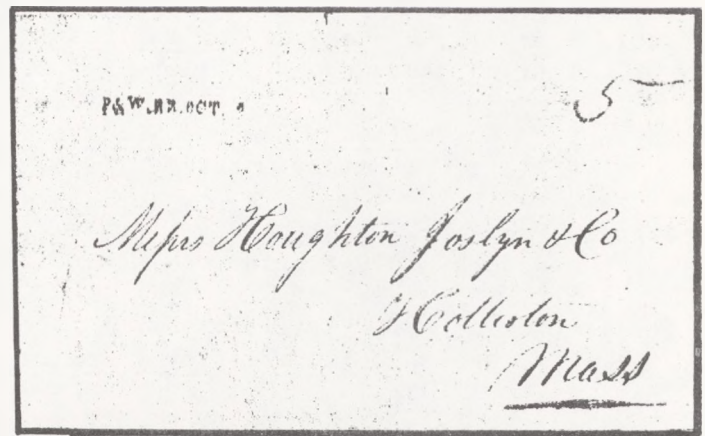 P&W.RR.OCT.
5
Messrs Houghton Joslyn & Co
Holliston
Mass